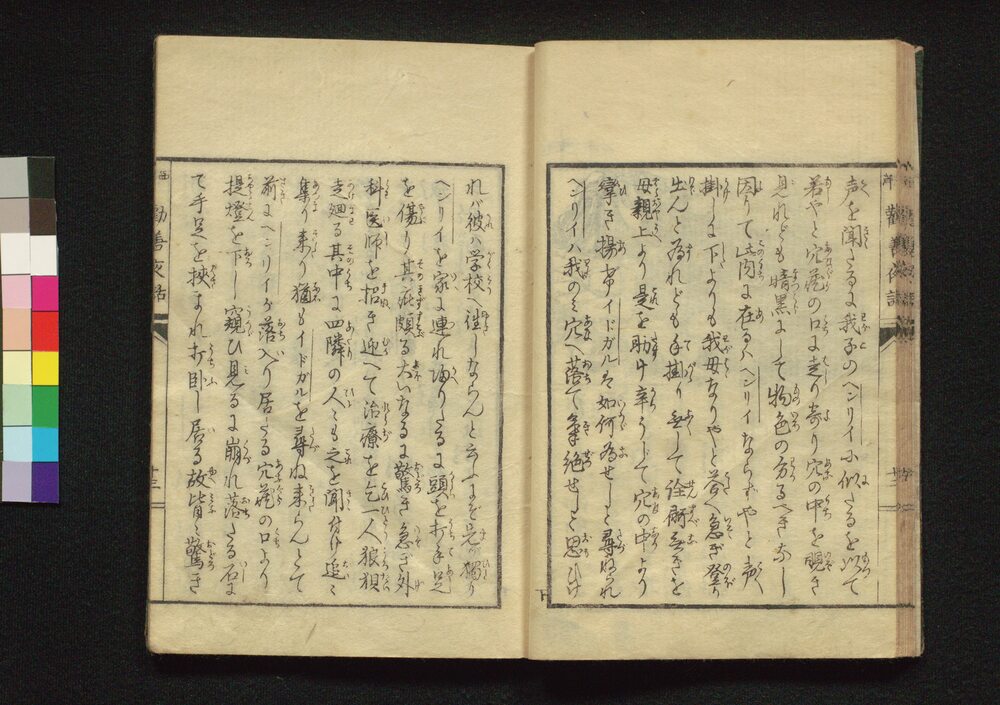 声を聞たるに我子のヘンリイに似たるを以て
若やと穴蔵の口に走り寄り穴の中を覗き
見れども暗黒にして物色の分るべきなし
因りて此内に在るハヘンリイならずやと声
掛しに下よりも我母なりやと答へ急ぎ登り
出んと為れども手掛り無して詮術無きを
母親上より是を助け辛うじて穴の中より
牽き揚弟イドガルは如何為せしと尋ぬれ
ヘンリイハ我のミ穴へ落て気絶せしと思ひけ
れバ彼ハ学校へ往しならんと云ふにぞ兄獨り
ヘンリイを家に連れ帰りたるに頭を打手足
を傷り其疵頗る大いなるに驚き急ぎ外
科医師を招き迎へて治療を乞一人狼狽
走廻る其中に四隣の人々も之を聞付け追々
集り来り猶もイドガルを尋ね来らんとて
前にヘンリイが落入り居たる穴蔵の口より
提燈を下し窺ひ見るに崩れ落たる石に
て手足を挟まれ打臥し居る故皆々驚き
勧善夜話
十二
下